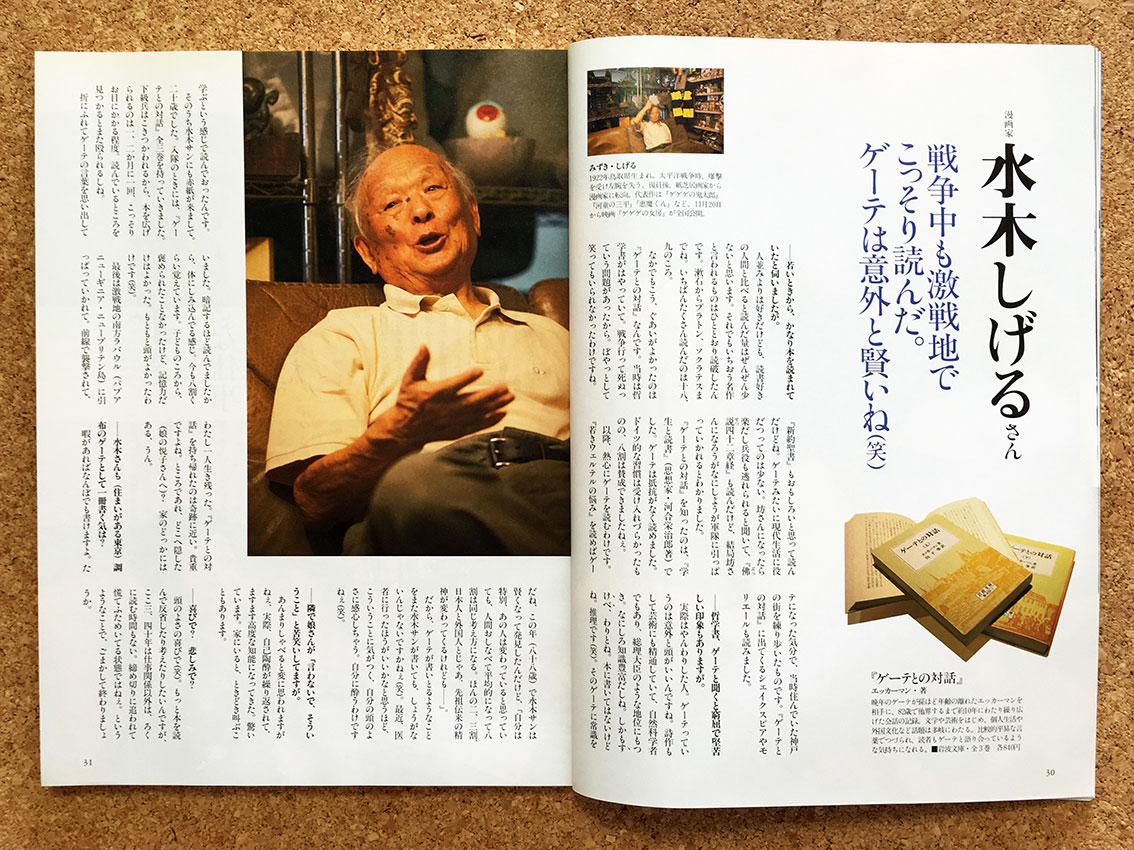 漫画家
水木しげるさん
戦争中も激戦地で
こっそり読んだ。
ゲーテは意外と賢いね(笑)
みずき・しげる
1922年鳥取県生まれ。太平洋戦争時、爆撃
を受け左腕を失う。復員後、紙芝居画家から
漫画家に転向。代表作は『ゲゲゲの鬼太郎』
『河童の三平』『悪魔くん』など。11月20日
から映画『ゲゲゲの女房』が全国公開。
――若いときから、かなり本を読まれて
いたと伺いましたが。
人並みよりは好きだけども、読書好き
の人間と比べると読んだ量はぜんぜん少
ないと思います。それでもいちおう名作
と言われるものはひととおり読破したん
です。漱石からプラトン、ソクラテスま
でね。いちばんたくさん読んだのは十八、
九のころ。
なかでもこう、ぐあいがよかったのは
『ゲーテとの対話』なんです。当時は哲
学書がはやっていて。戦争行って死ぬっ
ていう問題があったから。ぼやっとして
笑ってもいられなかったわけですね。
『新約聖書』もおもしろいと思って読ん
だけどね。ゲーテみたいに現代生活に役
だつってのは少ない。坊さんになったら
楽だし兵役も逃れられると聞いて、『佛
説四十二章経』も読んだけど、結局坊さ
んになろうがなにしようが軍隊に引っぱ
っていかれるとわかりました。
『ゲーテとの対話』を知ったのは、『学
生と読書』(思想家・河合栄治郎著)で
した。ゲーテは抵抗がなく読めました。
ドイツ的な習慣は受け入れづらかったも
のの、八割は賛成できましたねぇ。
以降、熱心にゲーテを読むわけです。
『若きウェルテルの悩み』を読めばゲー
テになった気分で、当時住んでいた神戸
の街を練り歩いたものです。『ゲーテと
の対話』に出てくるシェイクスピアやモ
リエールも読みました。
――哲学書、ゲーテと聞くと窮屈で堅苦
しい印象もありますが。
実際はやんわりした人。ゲーテってい
うのは意外と頭がいいんですね。詩作も
して芸術にも精通していて、自然科学者
でもあり、総理大臣のような地位にもつ
き、なにしろ知識豊富だしね。しかもす
けべ、わりとね。本に書いてはないけど
ね、推理です(笑)。そのゲーテに常識を
ゲーテとの対話
ゲーテとの対話
『ゲーテとの対話』
エッカーマン・著
晩年のゲーテが孫ほど年齢の離れたエッカーマンを
相手に、83歳で他界するまで約10年にわたり繰り広
げた会話の記録。文学や芸術をはじめ、個人生活や
外国文化など話題は多岐にわたる。比較的平易な言
葉でつづられ、読者もゲーテと語り合っているよう
な気持ちになれる。■岩波文庫・全3巻 各840円
30
学ぶという感じで読んでおったんです。
そのうち水木サンにも赤紙が来まして。
二十歳でした。入隊のときには、『ゲー
テとの対話』全三巻を持っていきました。
下級兵はこきつかわれるから、本を広げ
られるのは一、二か月に一回、こっそり
お目にかかる程度。読んでいるところを
見つかるとまた殴られるしね。
折にふれてゲーテの言葉を思い出して
いました。暗記するほど読んでましたか
ら、体にしみ込んでる感じ。今も八割く
らい覚えています。子どものころから、
褒められたことなかったけど、記憶力だ
けはよかった。もともと頭がよかったわ
けです(笑)。
最後は激戦地の南方ラバウル(パプア
ニューギニア・ニューブリテン島)に引
っぱっていかれて。前線で襲撃されて、
わたし一人生き残った。『ゲーテとの対
話』を持ち帰れたのは奇跡に近い。貴重
ですよね。ところであれ、どこへ隠した
(娘の悦子さんへ)? 家のどっかには
ある、うん。
――水木さんも(住まいがある東京)調
布のゲーテとして一冊書く気は?
暇があればなんぼでも書けますよ。た
だね、この年(八十八歳)で水木サンは
賢くなって発見したんだけど、「自分は
特別、あの人は変わっている」と思ってい
ても、人間おしなべて平均的になってん
割は同じ考え方になる。ほんの二、三割、
日本人と外国人とじゃあ、先祖伝来の精
神が変わってくるけれども――。
だから、ゲーテが書いとるようなこと
をまた水木サンが書いても、しょうがな
いんじゃないですかねぇ(笑)。最近、医
者に行ったほうがいいかなと思うほど、
こういうことに気がつく、自分の頭のよ
さに感心しちゃう。自分に酔うわけです
ねぇ(笑)。
――隣で娘さんが、「言わないで、そうい
うこと」と苦笑いしてますが。
あんまりしゃべると変に思われますが
ねぇ、実際。自己陶酔が繰り返されて、
ますます高度な知能になってきた。驚い
ています。家にいると、ときどき叫ぶこ
ともあります。
――喜びで? 悲しみで?
頭のよさの喜びで(笑)。もっと本を読
んで反省したり考えたりしたいんですが、
ここ三、四十年は仕事関係以外は、ろく
に読む時間もない。締め切りに追われて
慌てふためいてる状態ではねぇ。という
ようなことで、ごまかして終わりましょ
うか。
31